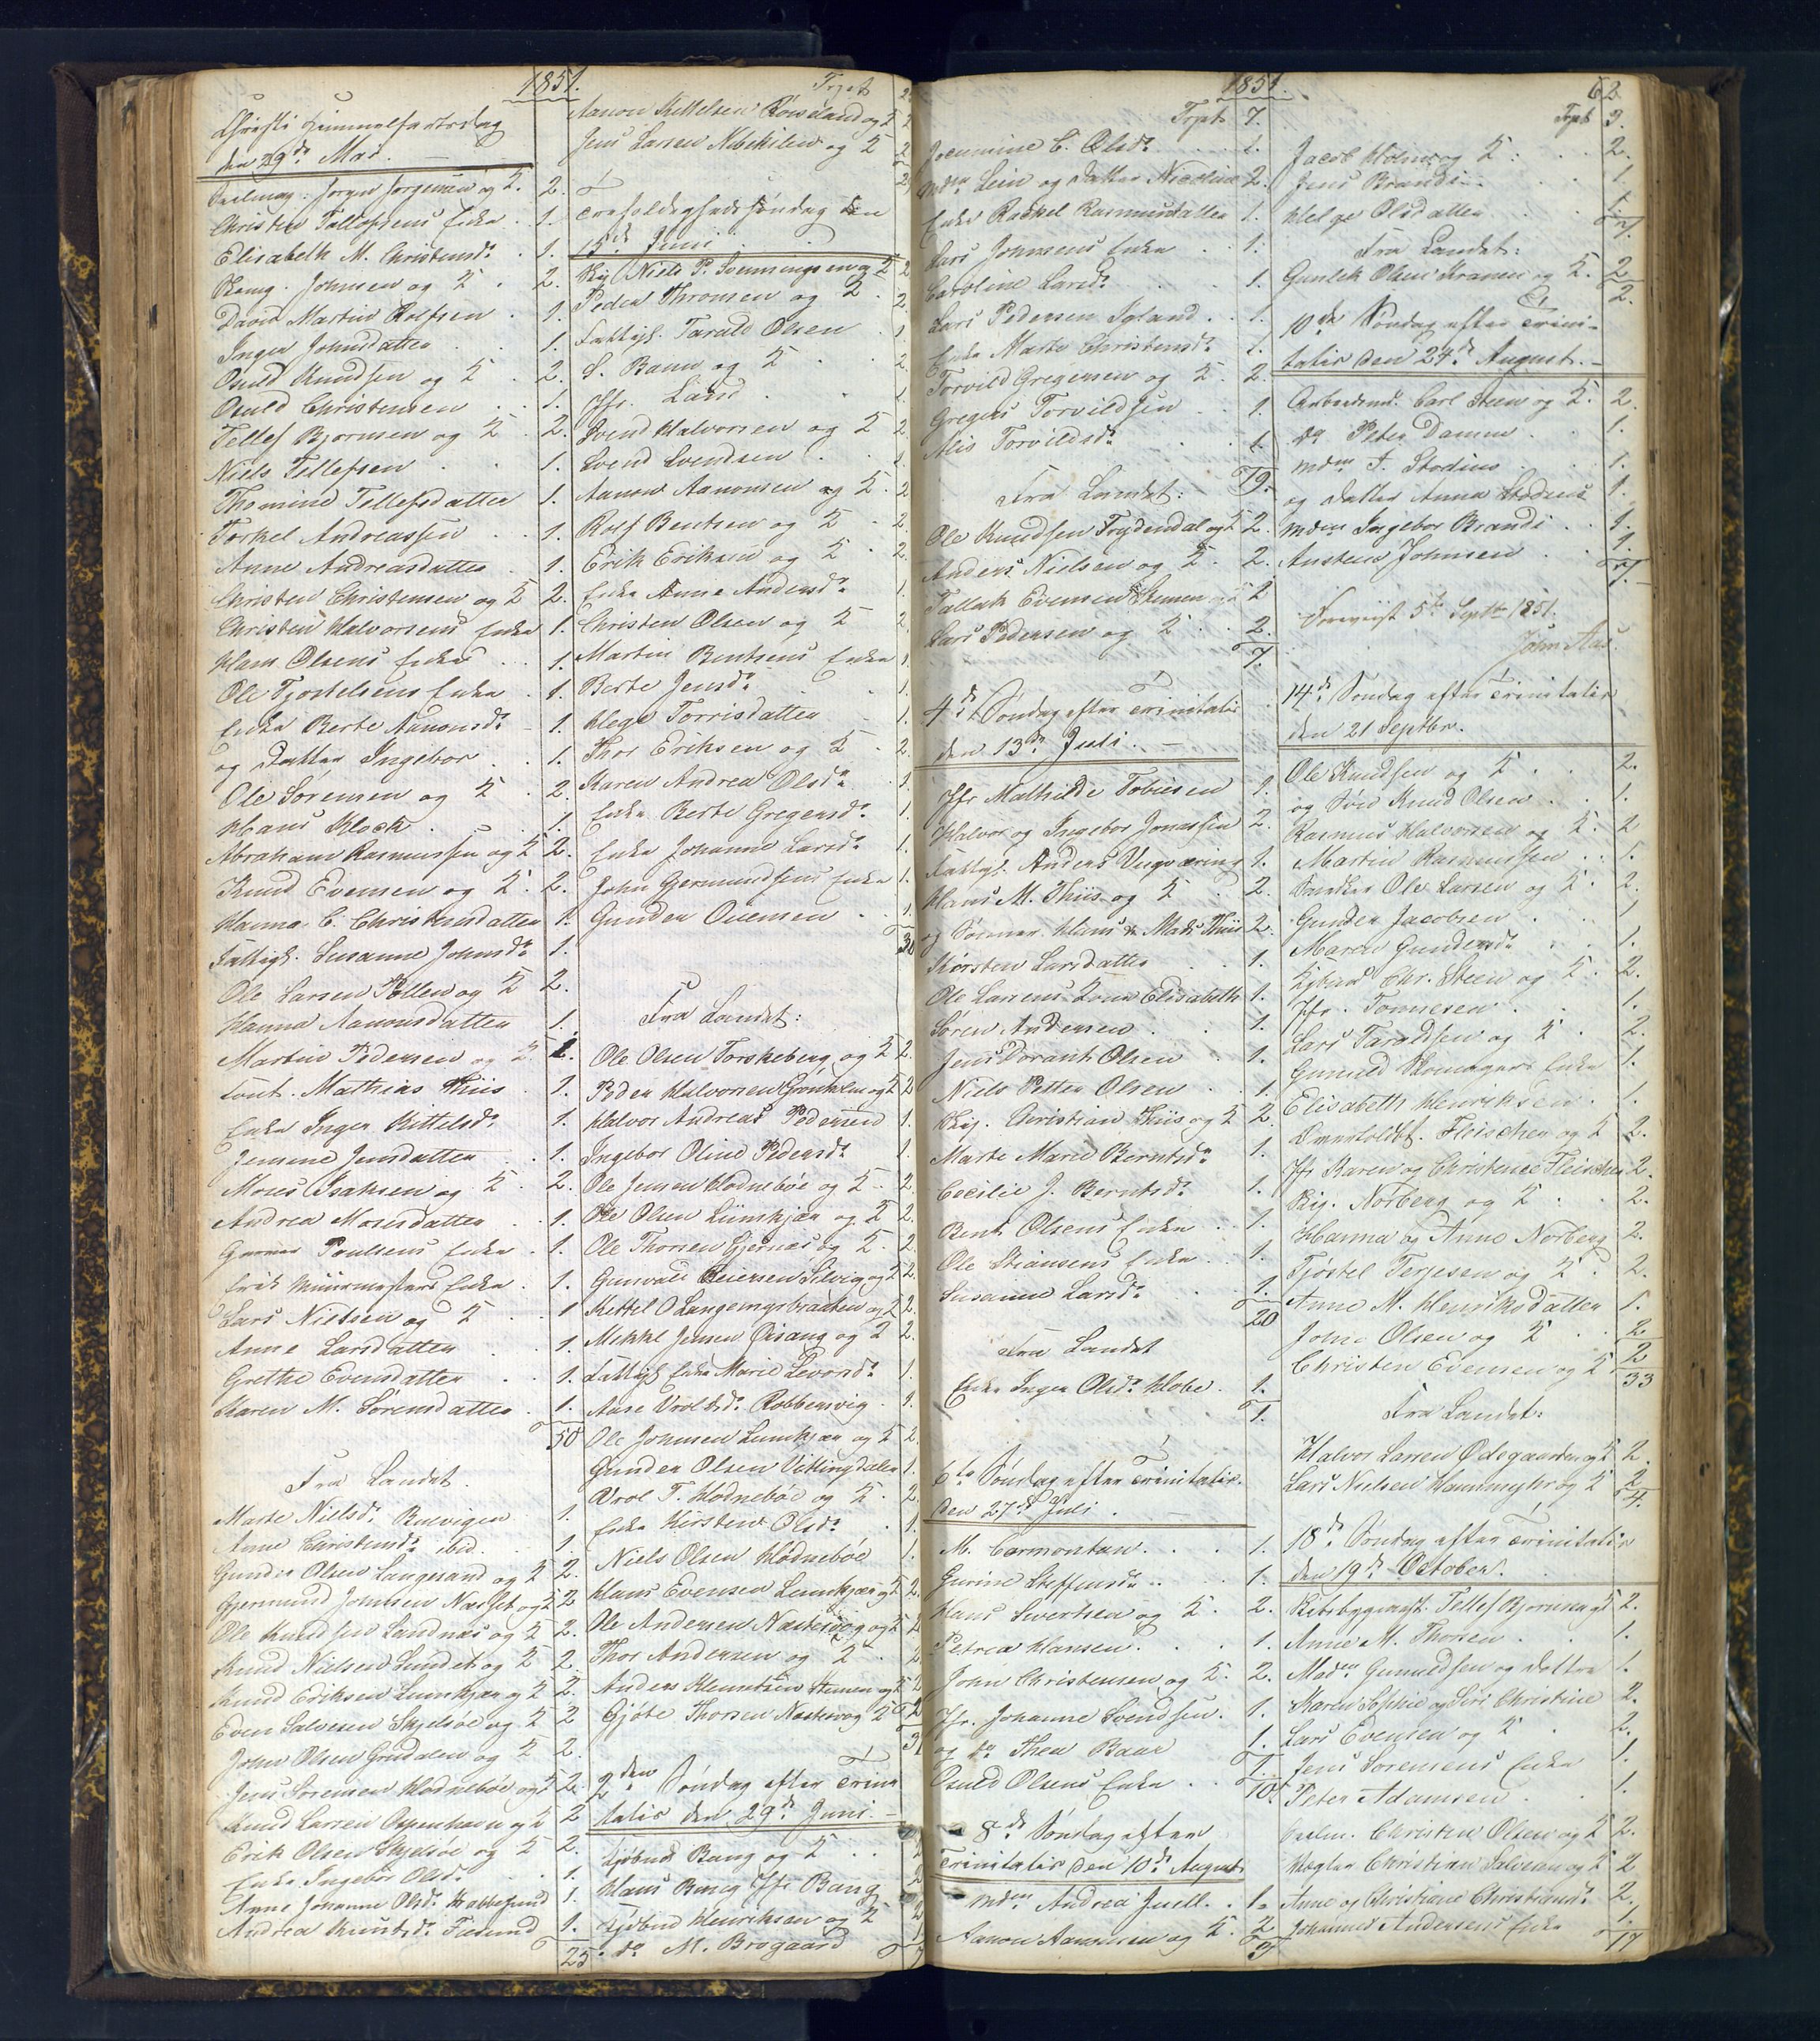 1851.
Christi Himmelfartsdag
den 29de Mai.
Seilmag. Jørgen Jørgensen og K. 2.
Christen Tallofsens Enke . 1.
Elisabeth M. Christensdr . 1.
Johnsen og K . 2.
David Martin Rolfsen . 1.
Inger Johnsdatter . . 1.
Osuld Knudsen og K . 2.
Osuld Christensen . . 1.
Tellef Bjornsen og K . 2.
Niels Tellefsen . . 1.
Thomine Tellefsdatter 1.
Torkel Andreassen . . 1.
Anne Andreasdatter . 1.
Christen Christensen og K 2.
Christen Halvorsens Enke 1.
Hans Olsens Enke . . 1.
Ole Tjostelsens Enke . 1.
Enke Berte Aanonsdr . 1.
og Datter Ingebor . . 1.
Ole Sørensen og K . 2.
Hans Klock . . . 1.
Abraham Rasmussen og K 2.
Knud Evensen og K . 2.
Hanna C. Christensdatter 1.
Fattigl. Susanne Johnsdr 1.
Ole Larsen og K 2.
Hanna Aanonsdatter 1.
Martin Pedersen og K. 2.
Mathias Thiis . 1.
Enke Inger Kittelsdr 1.
Jensine Jensdatter . . 1.
Moses Isaksen og K . 2.
Andrea Mosesdatter . . 1.
Gunner Poulsens Enke . 1.
Erik Muurmesters Enke . 1.
Lars Nielsen og K . . 1
Anne Larsdatter . . 1.
Grethe Evensdatter . . 1.
Karen M. Sørensdatter . 1.
50
Fra Landet.
Marte Nielsdr Bulvigen 1.
Anne Christensdr ibid. . 1.
Gunder Olsen Langesand og K 2.
Gjermund Johnsen Næsset og K 2
Ole Knudsen Sandnæs og K 2.
Knud Nielsen Sundet og K 2.
Knud Eriksen Lunkjær og K 2.
Even Salvesen Skjelsøe og K 2
John Olsen Grødalen og K 2.
Jens Sørensen Hødnebøe og K 2.
Knud Larsen og K 2
Erik Olsen Skjelsøe og K 2.
Enke Ingebor Olsdr . . 1.
Anne Johanne Olsdr Krabbesund 1.
Andrea Knutsdr 1.
25.
Trpt 2
Aanon Kittelsen Røiseland og K 2
Jens Larsen og K 2
Trefoldighedssøndag den
15de Juni .
Niels P. Svenningsen og K 2
Peder Thronsen og K . 2
Fattigl. Tarald Olsen . 1
S. Baun og K . . 2
Jfr. Land . . 1.
Svend Halvorsen og K 2
Svend Svendsen . . 1.
Aanon Aanonsen og K. 2
Rolf Bentsen og K . 2.
Erik Eriksen og K . 2.
Enke Anne Andersdr 1.
Christen Olsen og K 2.
Martin Bentsens Enke 1.
Berte Jensdr . . 1.
Hege Torrisdatter . 1.
Thor Eriksen og K . 2.
Karen Andrea Olsdr . 1.
Enke Berte Gregersdr . 1.
Enke Johanne Larsdr . 1.
John Gjermundsens Enke 1.
Gunder Ouensen . . 1.
Fra Landet:
Ole Olsen Torskeberg og K 2.
Peder Halvorsen og K 2
Halvor Andreas Pedersen 1.
Ingebor Oline Pedersdr 1.
Ole Jensen Hødnebøe og K . 2.
Ole Olsen Lunkjær og K 2.
Ole Thorsen Gjernæs og K . 2.
Gunvald Reiersen Silvig og K 2.
Kettel O. Langeingsbraaten og K 2.
Mikkel Jensen Øisang og K 2.
Fattigl. Enke Marie Levorsdr 1.
Aase Vroldsdr Robbersvig . 1.
Ole Johnsen Lunkjær og K 2.
Gunder Olsen Vikkingdalen 1.
Vrol T. Hødnebøe og K . 2.
Enke Kirsten Olsdr . 1.
Niels Olsen Hødnebøe 1.
Hans Evensen Lunkjær og K 2.
Ole Andersen Næsterøg og K 2
Thor Andersen og K . 2
Anders Klemetsen Stenen og K 2
Gjøte Thorsen og K 2
31
2den Søndag efter Trini
tatis den 29de Juni.
Kjøbmd Bang og K . . 2
Hans Bang Jfr Bang 2
Kjøbmd Henriksen og K 2
do M. Brogaard 1
7
1851.
Trpt 7.
Jocumine C. Olsdr . . 1.
Mdm Lein og Datter Nicoline 2.
Enke Rachel Rasmusdatter 1.
Lars Johnsens Enke . . 1.
Caroline Larsdr . . 1.
Lars Pedersen Igland . . 1.
Enke Marte Christensdr . 1.
Torvild Gregersen og K . 2.
Gregers Torvildsen . . 1.
Alis Torvildsdr . . 1.
19.
Fra Landet:
Ole Knudsen Frydendal og K 2.
Anders Nielsen og K . 2.
Tallak Evensen Stenen og K 2
Lars Pedersen og K . . 2.
7.
4de Søndag efter Trinitatis
den 13de Juli.
Jfr Mathilde Tobiesen 1.
Halvor og Ingebor Jonassen 2.
Fattigl. Anders 1.
Hans M. Thiis og K . 2.
og Sønner Hans & Mads Thiis 2.
Kirsten Larsdatter . 1.
Ole Larsens Kone Elisabeth 1.
Søren Andersen . . 1.
Jens Olsen 1.
Niels Petter Olsen . . 1.
Christian Thiis og K 2.
Marte Marie Berntsdr 1.
Cecilie J. Berntsdr . 1.
Bent Olsens Enke . . 1.
Ole Stiansens Enke . . 1.
Susanne Larsdr . . 1.
20
Fra Landet
Enke Inger Olsdr Hobe . 1.
1.
6te Søndag efter Trinitatis.
den 27de Juli .
M. Carmontan . . . 1.
Gurine Steffensdr . . 1.
Hans Sivertsen og K . 2.
Petrea Hansen . . . 1.
John Christensen og K . 2.
Jfr. Johanne Svendsen . 1.
og do Thea Baar 1.
Osuld Olsens Enke . . 1.
10.
8de Søndag efter
Trinitatis den 10de August
Mdm. Andrea Juell . . 1.
Aanon Aanonsen og K . 2
3
62.
Trpt 3.
Jacob Holm og K . . . 2.
Jens Brandi . . . 1.
Helge Olsdatter . . 1.
7.
Fra Landet:
Gunlek Olsen Kranen og K . 2
2.
10de Søndag efter Trini-
tatis den 24de August.
Arbeidsmd. Carl Steen og K . 2.
do Peter Damm . . 1.
Mdm A. Stordius . . 1.
og Datter Anna Stordius 1.
Mdm Ingebor Brandi . . 1.
Austen Johnsen . . 1.
7.
Foreviist 5te Septbr 1851.
John Aas
14de Søndag efter Trinitatis
den 21 Septbr.
Ole Knudsen og K . . 2.
og Søn Knud Olsen . . 1.
Rasmus Halvorsen og K . 2
Martin Rasmussen . . 1.
Snedker Ole Larsen og K . 2.
Gunder Jacobsen . . 1
Maren Gundersdr . . 1.
Kjøbmd Chr. Steen og K . 2.
Jfr. Tonnesen . . 1.
Lars Taraldsen og K . 2.
Gunuld Skomagers Enke 1.
Elisabeth Henriksen . 1.
Overtoldbt. Fleischer og K 2.
Jfr Karen og Christense Fleischer 2.
Norberg og K . . 2.
Hanna og Anne Norberg 2.
Tjøstel Terjesen og K . 2.
Anne M. Henriksdatter 1.
John Olsen og K . . 2
Christen Evensen og K . 2
33
Fra Landet:
Halvor Larsen Ødegaarden og K 2.
Lars Nielsen Hammeyhr og K 2
4.
18de Søndag efter Trinitatis
den 19de October.
Skibsbygmst. Tellef Bjornsen og K 2.
Anne M. Thorsen . . 1.
Madm Gunuldsen og Datter 1.
Karen Sophie og Siri Christine 2.
Lars Evensen og K . 2.
Jens Sorensens Enke 1.
Peter Adamsen . . 1.
Seilm. Christen Olsen og K 2.
Mægler Christian Salvesen og K 2
Anne og Christiane Christiansdr 2.
Johannes Andersens Enke 1.
17